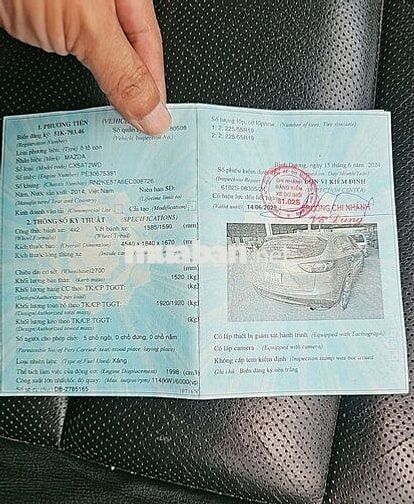 1. PHƯƠNG TIỆN (VEHICLE)
Biển đăng ký: 51K-703.46
(Registration Number)
Số quản lý
(Vehicle Inspection No.)
Loại phương tiện: (Type) ô tô con
Nhãn hiệu: (Mark) MAZDA
Số loại: (Model code) CX5AT2WD
Số máy: (Engine Number) PE30675381
Số khung: (Chassis Number)
Năm, Nước sản xuất: 2014, Việt Nam
(Manufactured Year and Country)
Niên hạn SD:
Kinh doanh vận tải (Commercial Use)
Cải tạo (Modification)
2. THÔNG SỐ KỸ THUẬT (SPECIFICATIONS)
Công thức bánh xe: 4x2
(Wheel Formula)
Vết bánh xe: 1585/1590 (mm)
(Wheel Tread)
Kích thước bao: (Overall Dimension) 4540 x 1840 x 1670 (mm)
Kích thước lòng thùng xe
Chiều dài cơ sở: (Wheelbase) 2700 (mm)
Khối lượng bản thân: (Kerb mass) 1520 (kg)
Khối lượng hàng CC theo TK/CP TGGT:
(Design/Authorized pay load)
Khối lượng toàn bộ theo TK/CP TGGT: 1920/1920 (kg)
(Design/Authorized total mass)
Khối lượng kéo theo TK/CP TGGT:
(Design/Authorized towed mass)
Số người cho phép chở: 5 chỗ ngồi, 0 chỗ đứng, 0 chỗ nằm
(Permissible No. of Pers Carried: seat, stood place, laying place)
Loại nhiên liệu: (Type of Fuel Used) Xăng
Thể tích làm việc của động cơ: (Engine Displacement) 1998 (cm3)
Công suất lớn nhất/tốc độ quay: (Max. output/rpm) 114(kW)/6000vph
Số sê ri: (No.) DB-2785165
Số lượng lốp, cỡ lốp/trục (Number of tires; Tire size/axle)
1: 2; 225/55R19
2: 2; 225/55R19
Bình Dương, ngày 15 tháng 6 năm 2024
Số phiếu kiểm định
(Inspection Report No)
ĐƠN VỊ KIỂM ĐỊNH
Có hiệu lực đến hết ngày
(Valid until) 14/06/2025
61.02S
Có lắp thiết bị giám sát hành trình (Equipped with Tachograph)
Có lắp camera (Equipped with camera)
Không cấp tem kiểm định (Inspection stamp was not issued)
Ghi chú: Biển đăng ký nền trắng